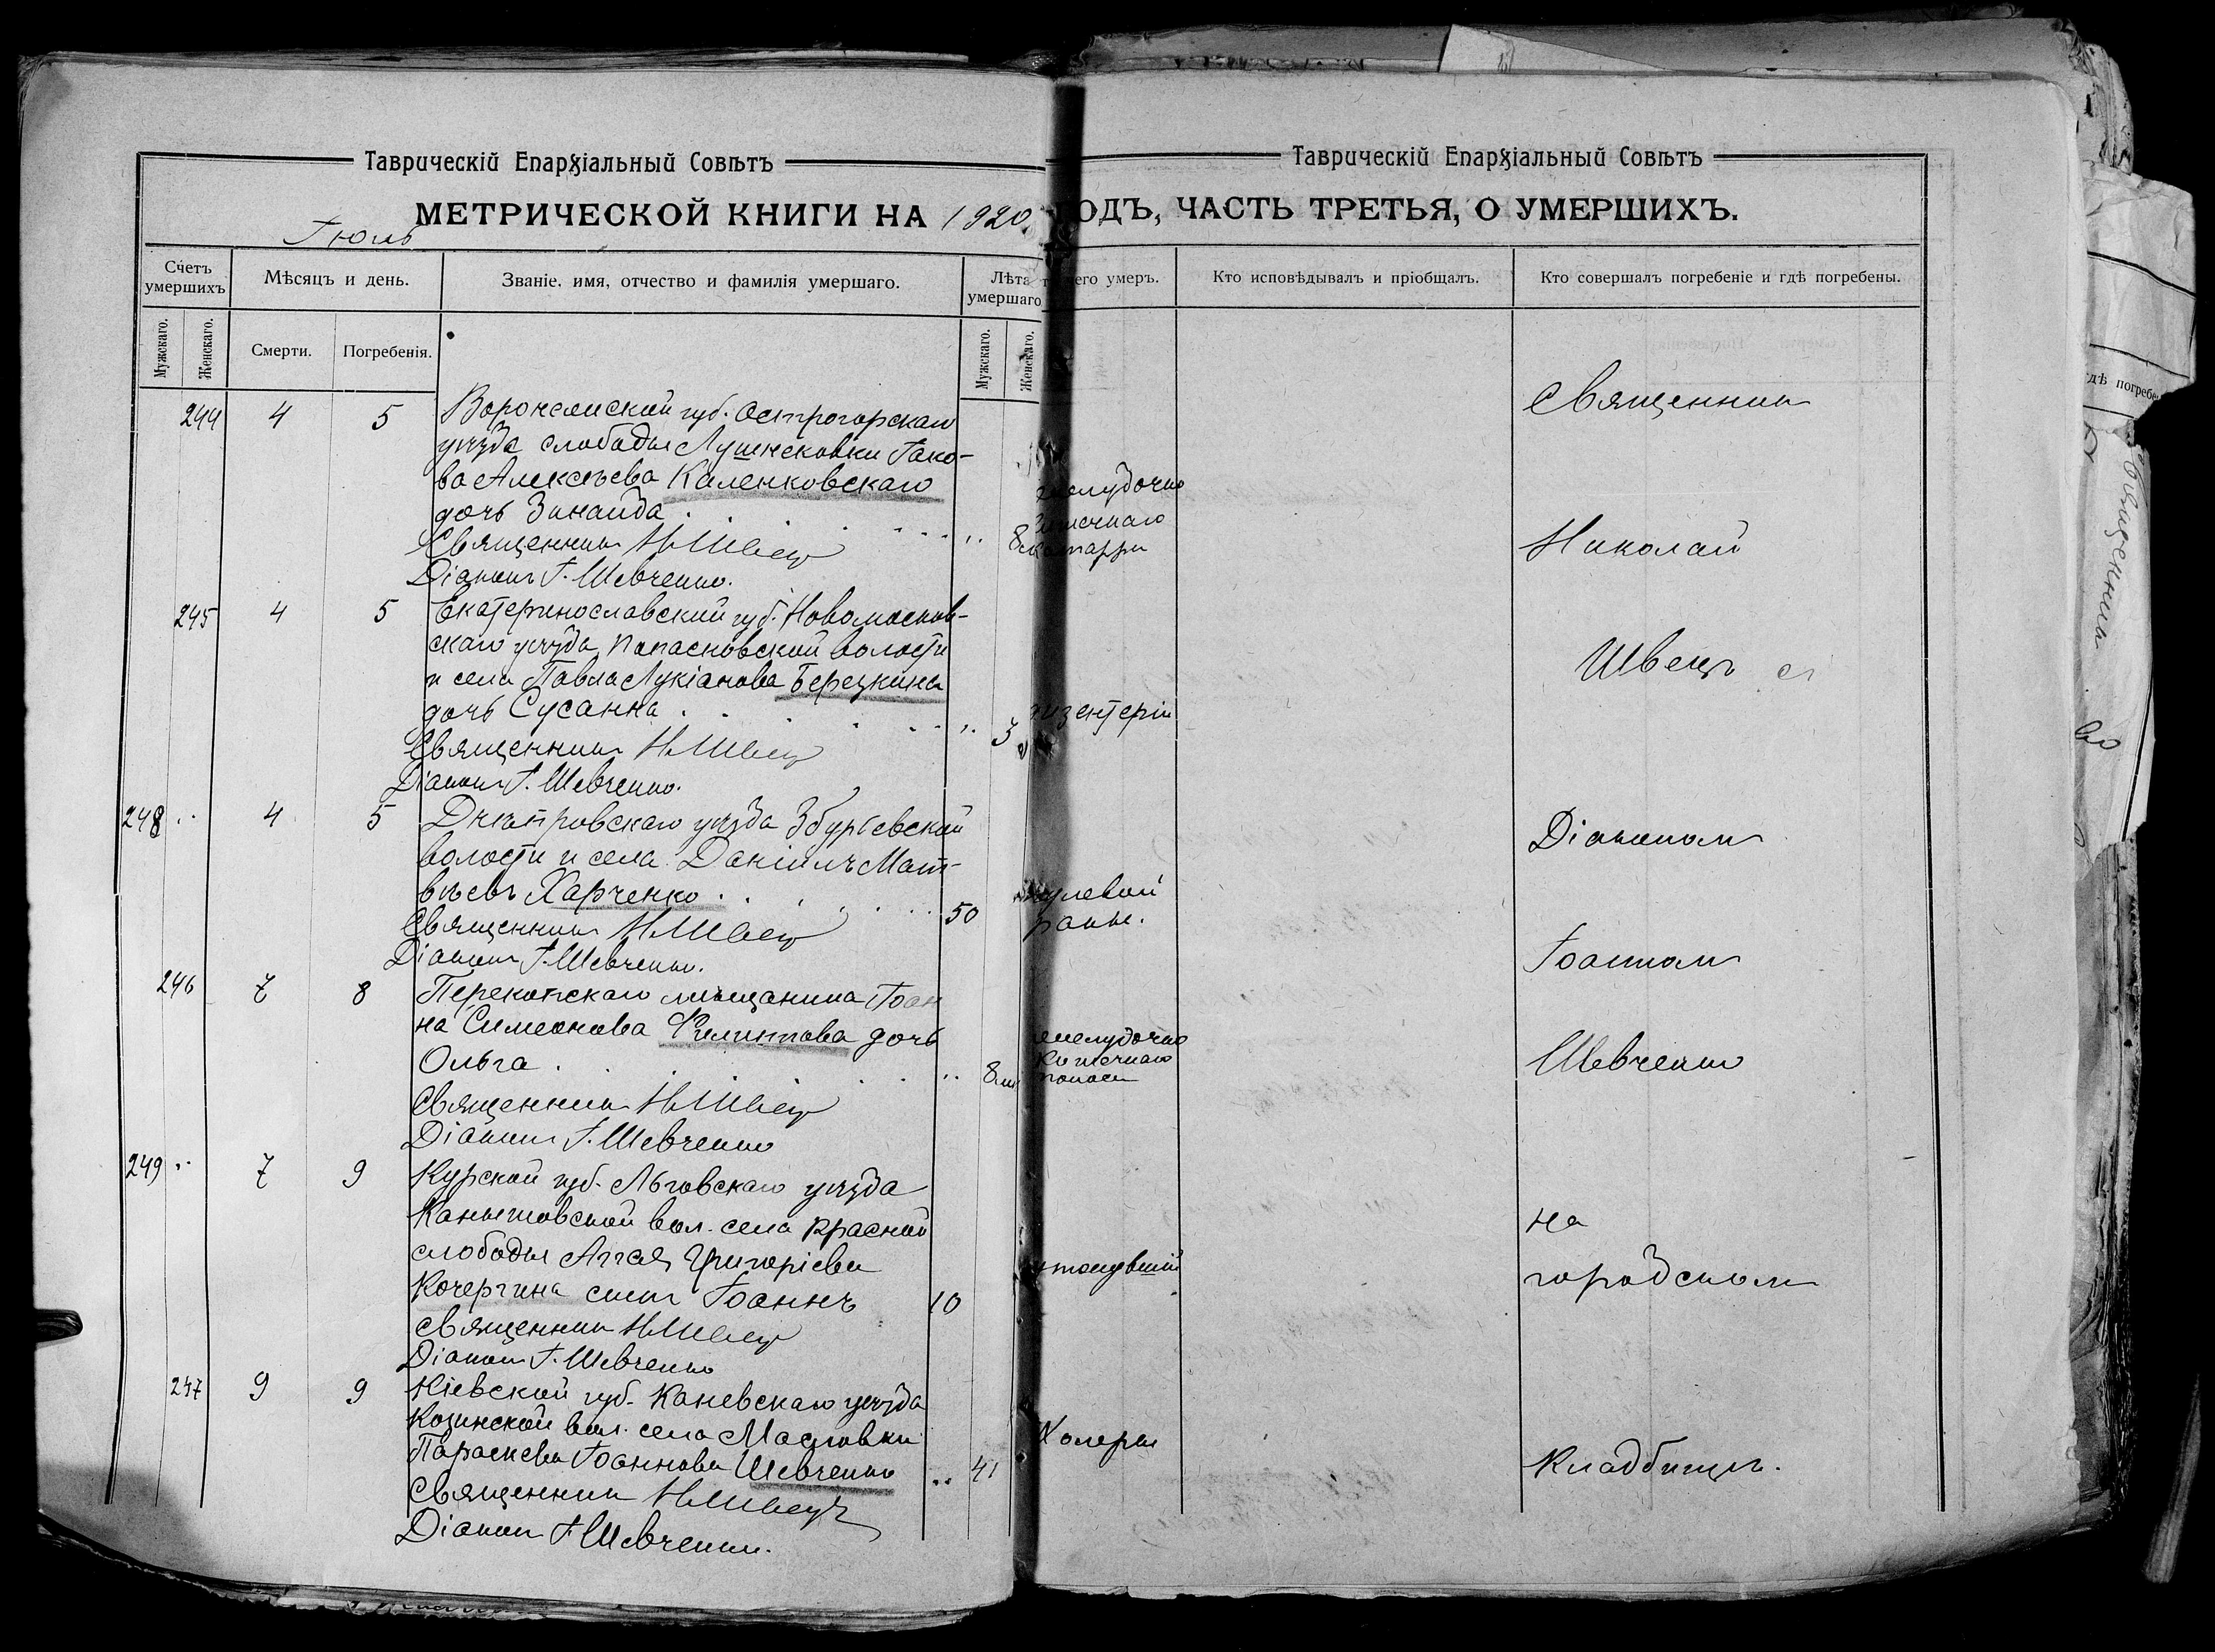 Таврическій Епархіальный Совѣтъ
Таврическій Епархіальный Совѣтъ
МЕТРИЧЕСКОЙ КНИГИ НА 1920 ОДЪ, ЧАСТЬ ТРЕТЬЯ, О УМЕРШИХЪ.
Іюль
Счетъ умершихъ
Мѣсяцъ и день.
Званіе, имя, отчество и фамилія умершаго.
Лѣта умершаго
его умеръ.
Кто исповѣдывалъ и пріобщалъ.
Кто совершалъ погребеніе и гдѣ погребены.
Мужскаго.
Женскаго.
Смерти.
Погребенія.
Мужскаго.
Женскаго.
244 4 5 Воронежской губ. Острогорскаго
уѣзда слободы Лушниковки Іако-
ва Алексѣева Каленковскаго
дочь Зинаида
8
желудочно
катарра
Священникъ Н Швецъ
Діаконъ І. Шевченко.
245 4 5 Екатеринославской губ. Новомосков-
скаго уѣзда Попасновской волости
и села Павла Лукіанова Берецкина
дочь Сусанна
3
дизентеріи
Священникъ Н Швецъ
Діаконъ І. Шевченко.
248 4 5 Днѣпровскаго уѣзда Збурьевской
волости и села Даніилъ Мат-
вѣевъ Харченко
50
пулевой
раны.
Священникъ Н Швецъ
Діаконъ І. Шевченко.
246 7 8 Перекопскаго мѣщанина Іоан
на Симеонова Филиппова дочь
Ольга
8 м
желудочно
кишечнаго
поноса
Священникъ Н Швецъ
Діаконъ І. Шевченко
249 7 9 Курской губ. Льговскаго уѣзда
вол. села Красной
слободы Аггея Григоріева
Кочергина сынъ Іоаннъ 10
утонувшій
Священникъ Н Швецъ
Діаконъ І. Шевченко
247 9 9 Кіевской губ. Каневскаго уѣзда
Козинской вол. села Масловки
Параскева Іоаннова Шевченко 41
Холеры
Священникъ Н Швецъ
Діаконъ І Шевченко.
Священникъ
Николай
Швецъ съ
Діакономъ
Іоанномъ
Шевченко
на
городскомъ
кладбищѣ.
дѣ погребе
Священникъ